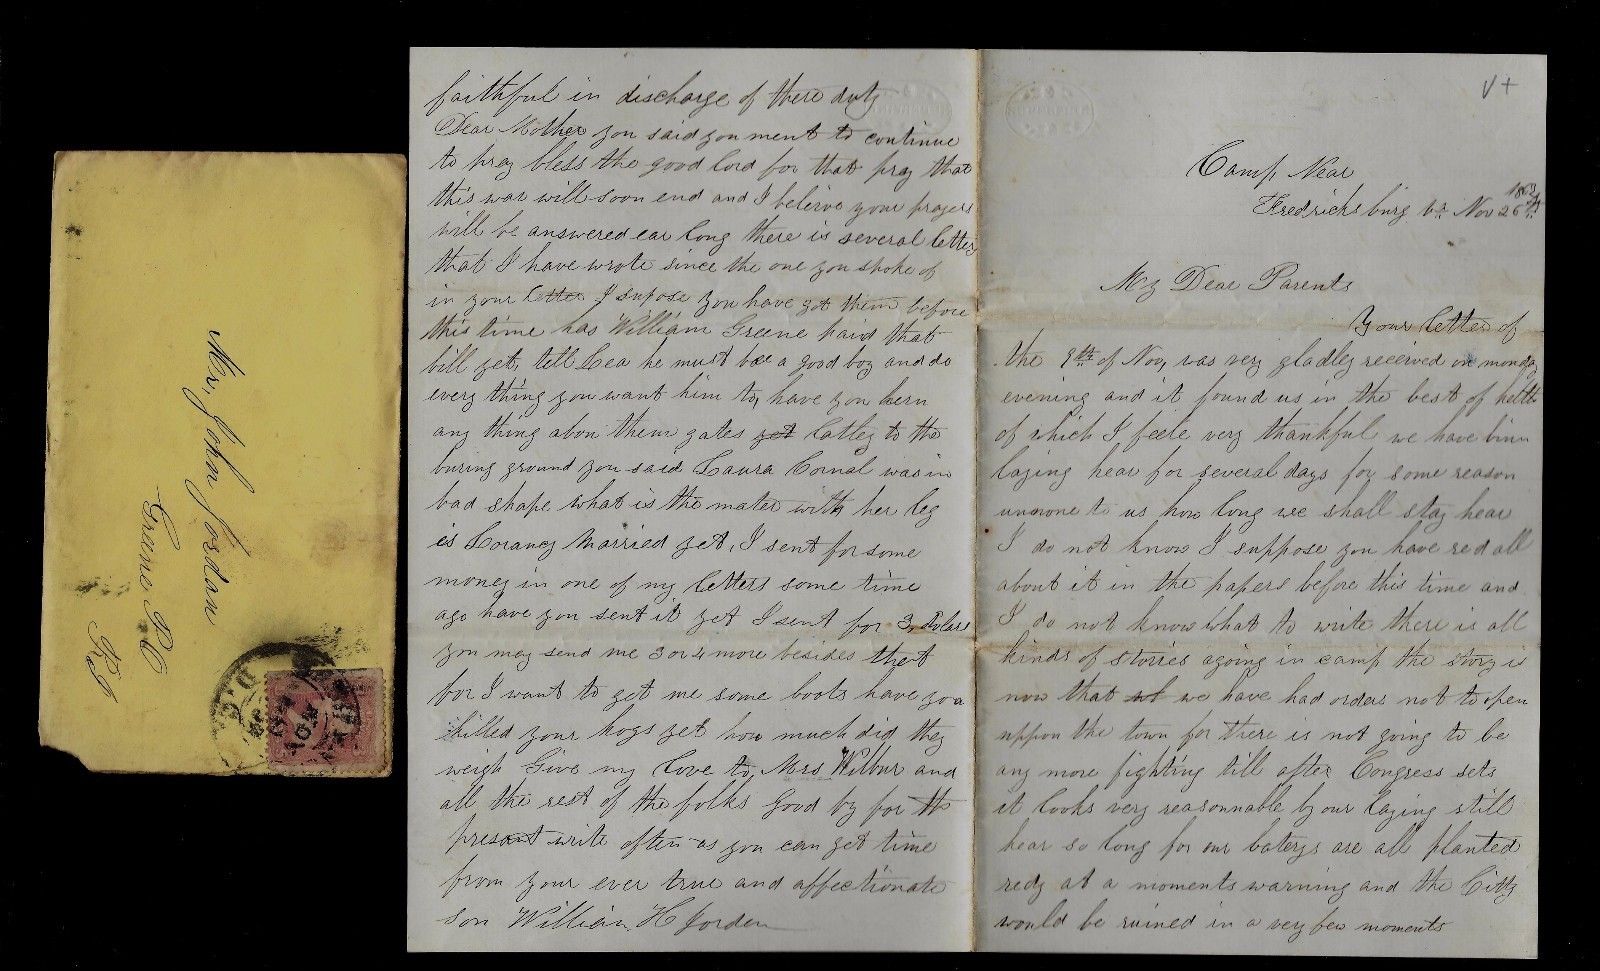 Mr, John Jordan
Greene P.O
R,I
V+
Camp, Near
Fredrichsburg va Nov 26th
1863
My Dear Parents
Your letter of
the 9th of Nov, was very gladley received on monday
evening and it found us in the best of helth
of which I feele very thankful we have binn
laying hear for several days for some reason
unnone to us how long we shall stay hear
I do not know I suppose you have red all
about it in the papers before this time and
I do not know what to write there is all
kinds of stories agoing in camp the story is
now that we have had orders not to open
uppon the town for there is not going to be
any more fighting till after Congress sets
it looks very reasonnable by our laying still
hear so long for our baterys are all planted
redy at a moments warning and the Citty
would be ruined in a very few moments
faithful in discharge of there duty
Dear Mother you said you ment to continue
to pray bless the good lord for that pray that
this war will soon end and I beleive your prayers
will be answered ear long there is several letters
that I have wrote since the one you spoke of
in your letter I supose you have got them before
this time has William Greene paid that
bill yet, tell Lea he must be a good boy and do
every thing you want him to, have you hern
any thing abou them gates yet latley to the
buring ground you said Laura Cornal was in
bad shape what is the mater with her leg
is Lorancy Married yet, I sent for some
money in one of my letters some time
ago have you sent it yet I sent for 3, dolars
you may send me 3 or 4 more besides that
for I want to get me some boots have you
killed your hogs yet how much did they
weigh Give my love to, Mrs Wilbur and
all the rest of the folks Good by for the
present write often as you can get time
from your ever true and affectionate
son William H Jorden